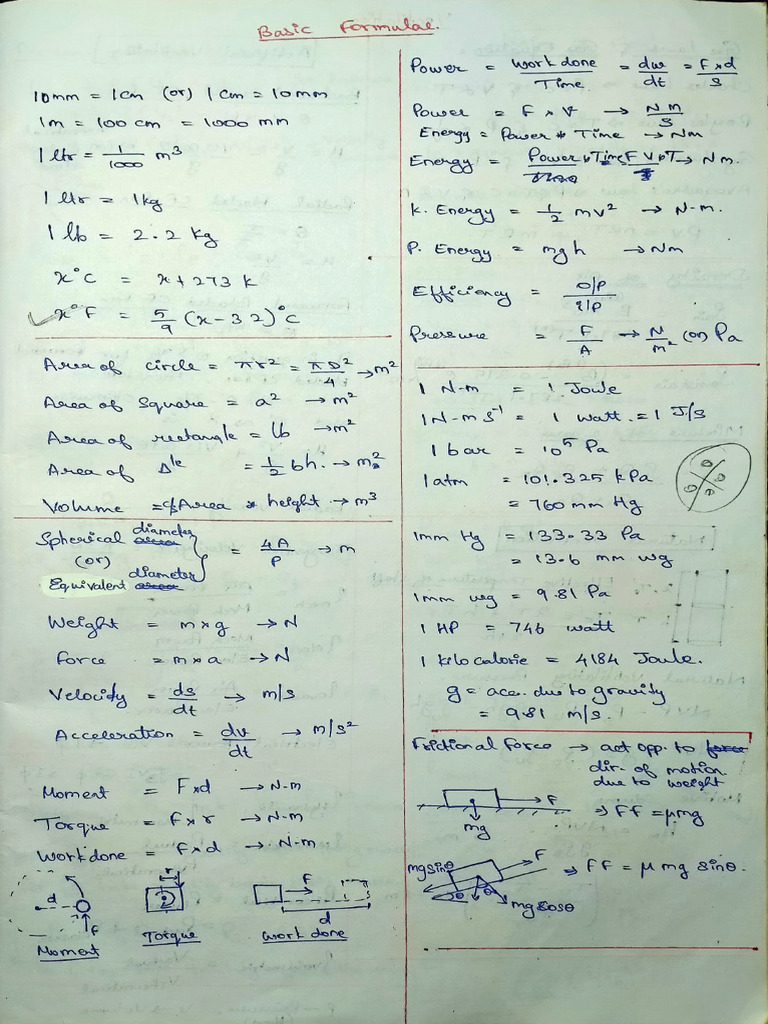 Basic Formulae.
10mm = 1cm (or) 1cm = 10mm
1m = 100 cm = 1000 mm
1 ltr = 1/1000 m³
1 ltr = 1kg
1 lb = 2.2 kg
x°C = x + 273 k
x°F = 5/9 (x - 32)°C
Area of circle = πr² = πD²/4 → m²
Area of Square = a² → m²
Area of rectangle = lb → m²
Area of Δle = 1/2 bh. → m²
Volume = Area * height → m³
Spherical diameter
(or) = 4A/P → m
Equivalent diameter
Weight = m × g → N
force = m × a → N
Velocity = ds/dt → m/s
Acceleration = dv/dt → m/s²
Moment = F×d → N-m
Torque = F×r → N-m
Work done = F×d → N-m
d f
Moment
r
Torque
F
d
Work done
Power = Work done/Time = dw/dt = F×d/s
Power = F × V → Nm/s
Energy = Power * Time → Nm
Energy = Power * Time F V * T → Nm.
K. Energy = 1/2 mv² → N-m.
P. Energy = mgh → Nm
Efficiency = O/P / I/P
Pressure = F/A → N/m² (or) Pa
1 N-m = 1 Joule
1 N-m s⁻¹ = 1 watt = 1 J/s
1 bar = 10⁵ Pa
1 atm = 101.325 kPa
= 760 mm Hg
1mm Hg = 133.33 Pa
= 13.6 mm wg
1mm wg = 9.81 Pa
1 HP = 746 watt
1 kilocalorie = 4184 Joule.
g = acc. due to gravity
= 9.81 m/s.
Frictional force → act opp. to
dir. of motion
due to weight
F
mg
⇒ FF = μmg
mg sinθ
F
θ
θ
mg cosθ
⇒ FF = μ mg sinθ.